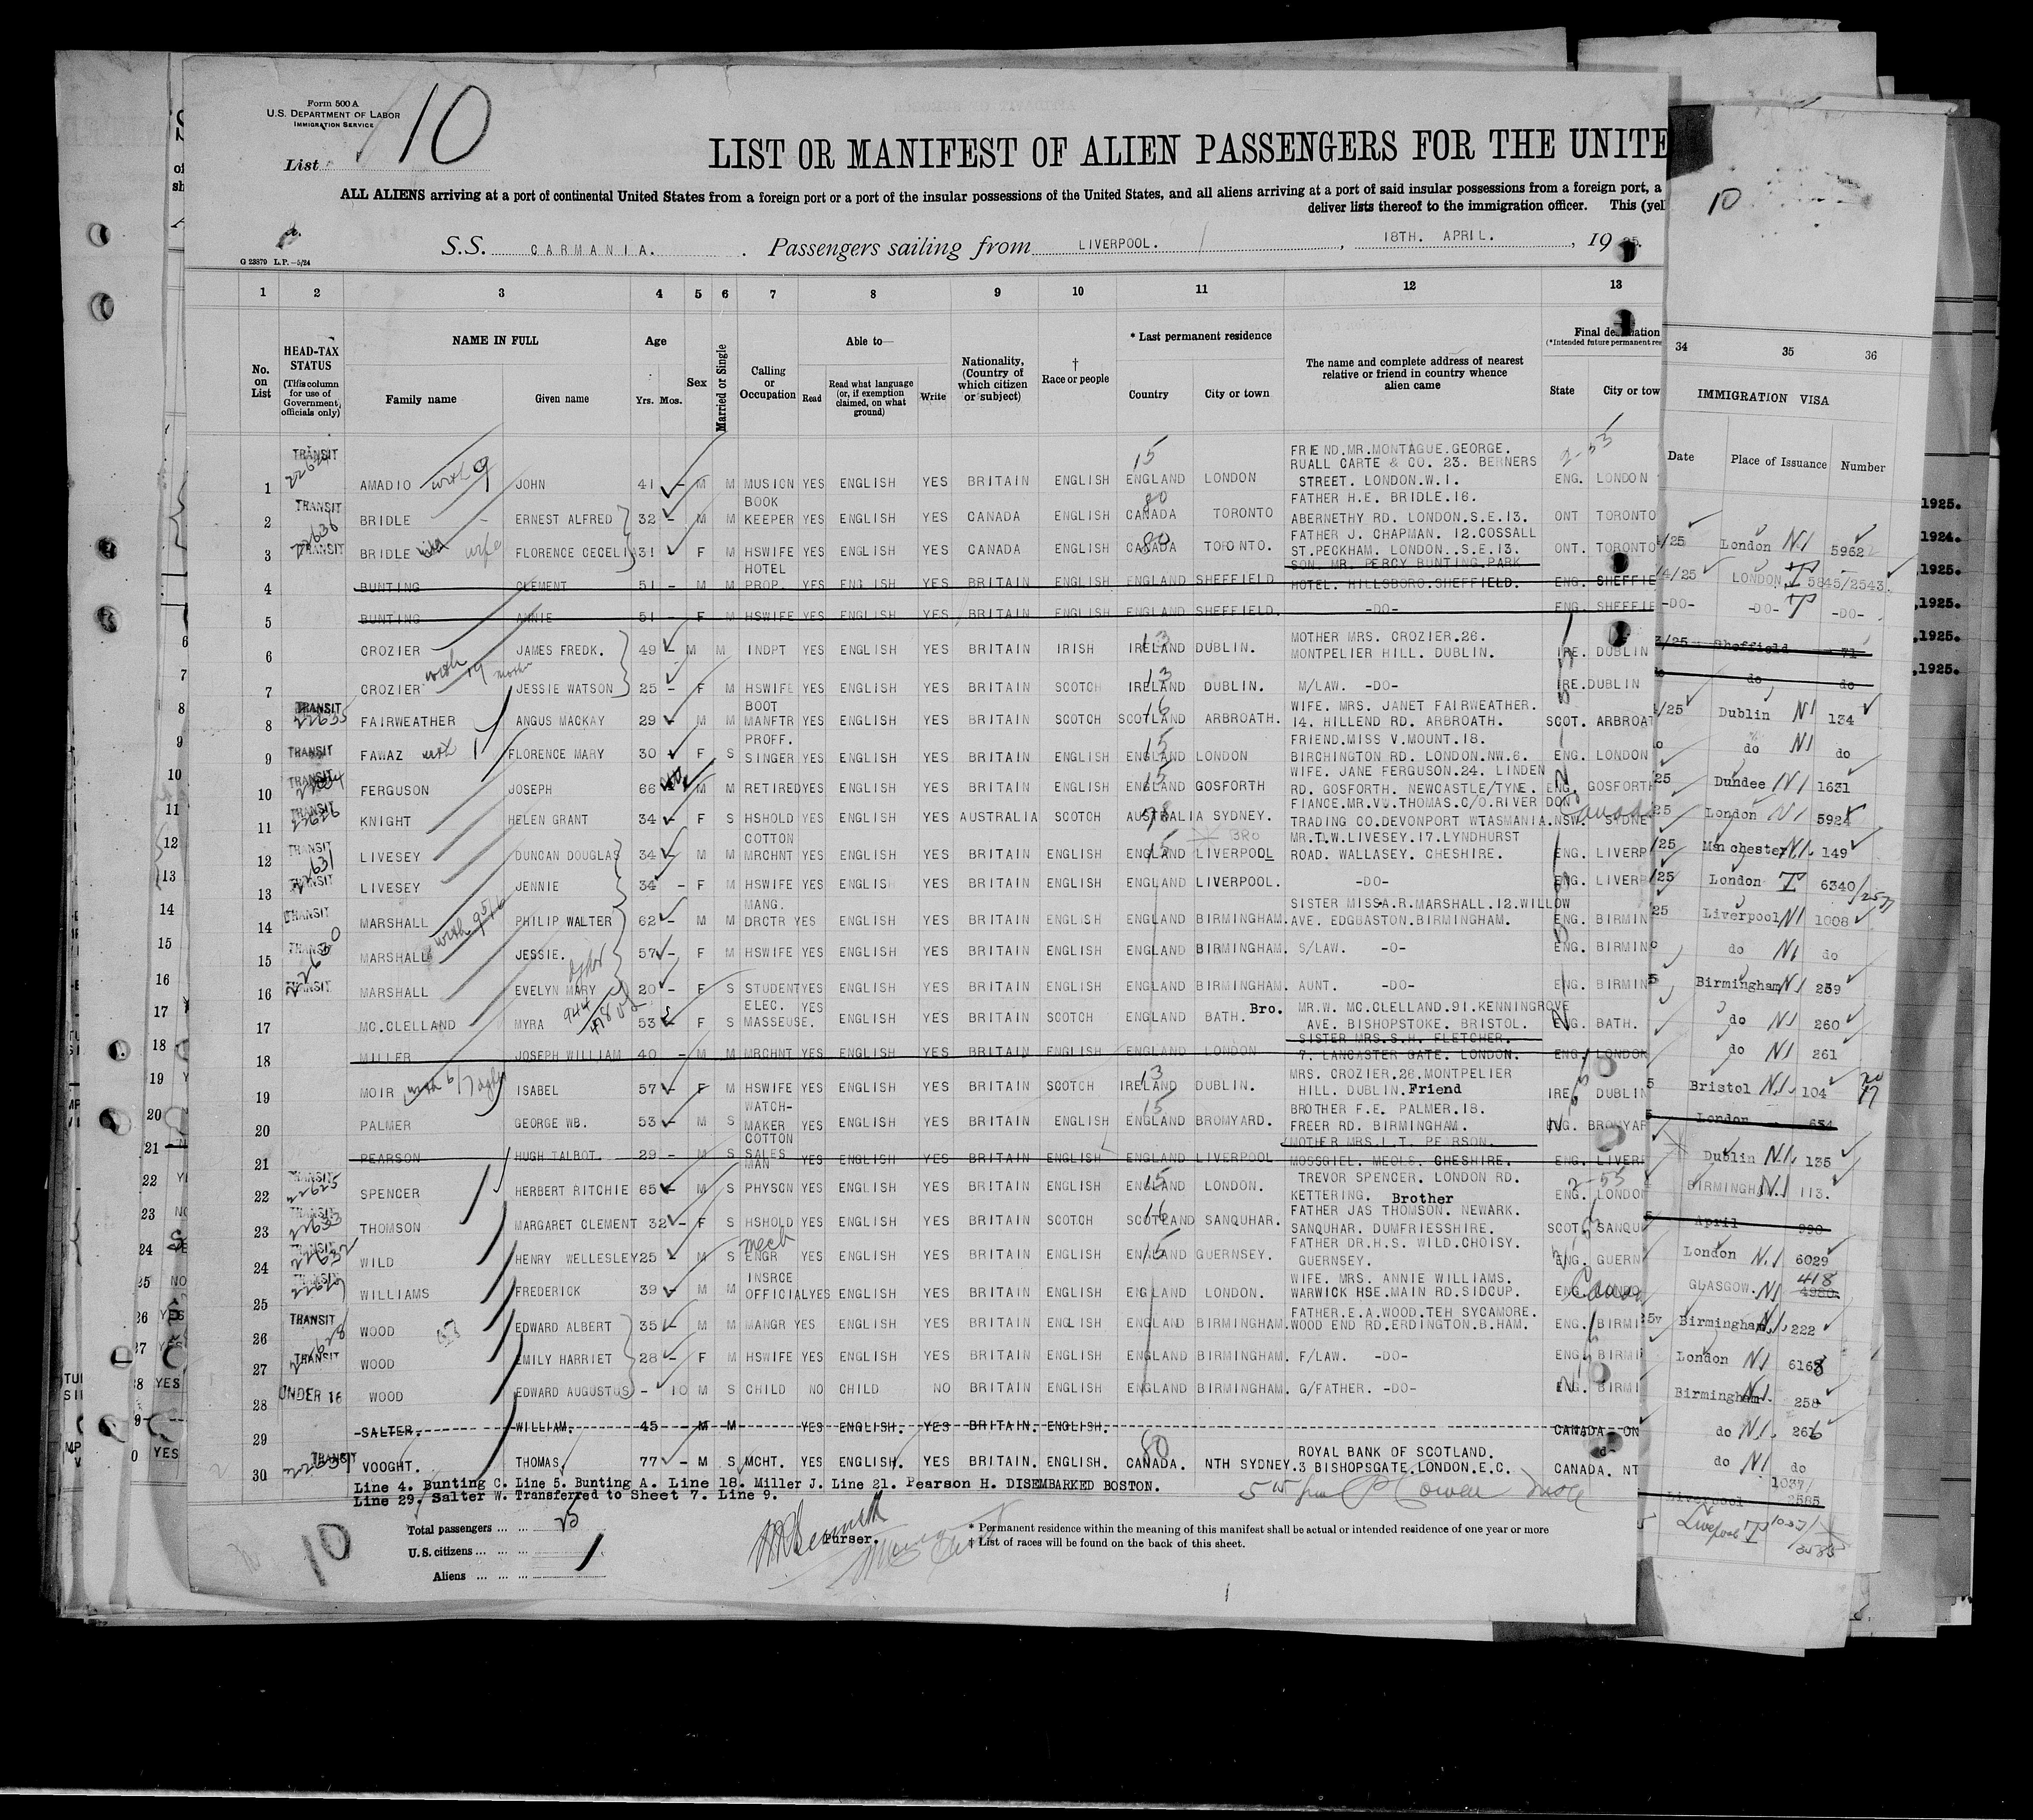 Form 500 A
U.S. DEPARTMENT OF LABOR
IMMIGRATION SERVICE
List 10
LIST OR MANIFEST OF ALIEN PASSENGERS FOR THE UNITE
ALL ALIENS arriving at a port of continental United States from a foreign port or a port of the insular possessions of the United States, and all aliens arriving at a port of said insular possessions from a foreign port, a
deliver lists thereof to the immigration officer. This (yel
S.S. CARMANIA. Passengers sailing from LIVERPOOL. , 18TH. APRIL. , 19
G 23879 L.P.-5/24
1 2 3 4 5 6 7 8 9 10 11 12 13
No. on List
HEAD-TAX STATUS
(This column for use of Government officials only)
NAME IN FULL
Family name Given name
Age
Yrs. Mos.
Sex
Married or Single
Calling or Occupation
Able to—
Read
Read what language (or, if exemption claimed, on what ground)
Write
Nationality, (Country of which citizen or subject)
† Race or people
* Last permanent residence
Country City or town
The name and complete address of nearest relative or friend in country whence alien came
Final destination
(*Intended future permanent res
State City or tow
1 TRANSIT AMADIO JOHN 41 - M M MUSICN YES ENGLISH YES BRITAIN ENGLISH ENGLAND LONDON FRIEND.MR.MONTAGUE.GEORGE. RUALL CARTE & CO. 23. BERNERS STREET. LONDON.W.1. ENG. LONDON
2 TRANSIT BRIDLE ERNEST ALFRED 32 - M M BOOK KEEPER YES ENGLISH YES CANADA ENGLISH CANADA TORONTO FATHER H.E. BRIDLE.16. ABERNETHY RD. LONDON.S.E.13. ONT TORONTO
3 TRANSIT BRIDLE wife FLORENCE CECELIA 31 F M HSWIFE YES ENGLISH YES CANADA ENGLISH CANADA TORONTO. FATHER J. CHAPMAN. 12.COSSALL ST.PECKHAM. LONDON..S.E.13. ONT. TORONTO
4 BUNTING CLEMENT 51 - M M HOTEL PROP. YES ENGLISH YES BRITAIN ENGLISH ENGLAND SHEFFIELD SON. MR. PERCY BUNTING.PARK HOTEL. HILLSBORO.SHEFFIELD. ENG. SHEFFIE
5 BUNTING ANNIE 51 - F M HSWIFE YES ENGLISH YES BRITAIN ENGLISH ENGLAND SHEFFIELD. -DO- ENG. SHEFFIE
6 CROZIER JAMES FREDK. 49 - M M INDPT YES ENGLISH YES BRITAIN IRISH IRELAND DUBLIN. MOTHER MRS. CROZIER.26. MONTPELIER HILL. DUBLIN. IRE. DUBLIN
7 CROZIER JESSIE WATSON 25 - F M HSWIFE YES ENGLISH YES BRITAIN SCOTCH IRELAND DUBLIN. M/LAW. -DO- IRE.DUBLIN
8 TRANSIT 22635 FAIRWEATHER ANGUS MACKAY 29 M M BOOT MANFTR YES ENGLISH YES BRITAIN SCOTCH SCOTLAND ARBROATH. WIFE. MRS. JANET FAIRWEATHER. 14. HILLEND RD. ARBROATH. SCOT. ARBROAT
9 TRANSIT FAWAZ FLORENCE MARY 30 F S PROFF. SINGER YES ENGLISH YES BRITAIN ENGLISH ENGLAND LONDON FRIEND.MISS V.MOUNT.18. BIRCHINGTON RD. LONDON.NW.6. ENG. LONDON
10 TRANSIT FERGUSON JOSEPH 66 M M RETIRED YES ENGLISH YES BRITAIN ENGLISH ENGLAND GOSFORTH WIFE. JANE FERGUSON.24. LINDEN RD. GOSFORTH. NEWCASTLE/TYNE. ENG. GOSFORTH
11 TRANSIT 22626 KNIGHT HELEN GRANT 34 F S HSHOLD YES ENGLISH YES AUSTRALIA SCOTCH AUSTRALIA SYDNEY. FIANCE.MR.VW.THOMAS.C/O.RIVER DON TRADING CO.DEVONPORT WTASMANIA. NSW. SYDNE
12 TRANSIT 22631 LIVESEY DUNCAN DOUGLAS 34 M M COTTON MRCHNT YES ENGLISH YES BRITAIN ENGLISH ENGLAND LIVERPOOL BRO MR.T.W.LIVESEY.17.LYNDHURST ROAD. WALLASEY. CHESHIRE. ENG. LIVERP
13 TRANSIT LIVESEY JENNIE 34 - F M HSWIFE YES ENGLISH YES BRITAIN ENGLISH ENGLAND LIVERPOOL. -DO- ENG. LIVERP
14 TRANSIT MARSHALL PHILIP WALTER 62 - M M MANG. DRCTR YES ENGLISH YES BRITAIN ENGLISH ENGLAND BIRMINGHAM. SISTER MISS.A.R.MARSHALL.12.WILLOW AVE. EDGBASTON.BIRMINGHAM. ENG. BIRMIN
15 TRANSIT 22630 MARSHALL JESSIE. 57 - F M HSWIFE YES ENGLISH YES BRITAIN ENGLISH ENGLAND BIRMINGHAM. S/LAW. -O- ENG. BIRMING
16 TRANSIT MARSHALL EVELYN MARY 20 - F S STUDENT YES ENGLISH YES BRITAIN ENGLISH ENGLAND BIRMINGHAM. AUNT. -DO- ENG. BIRMIN
17 MC.CLELLAND MYRA 53 F S ELEC. MASSEUSE. YES ENGLISH YES BRITAIN SCOTCH ENGLAND BATH. Bro. MR.W. MC.CLELLAND.91.KENNINGROVE AVE. BISHOPSTOKE. BRISTOL. ENG. BATH.
18 MILLER JOSEPH WILLIAM 40 - M M MRCHNT YES ENGLISH YES BRITAIN ENGLISH ENGLAND LONDON SISTER MRS.S.H. FLETCHER. 7. LANCASTER GATE. LONDON. ENG. LONDON
19 MOIR ISABEL 57 F M HSWIFE YES ENGLISH YES BRITAIN SCOTCH IRELAND DUBLIN. MRS. CROZIER.26.MONTPELIER HILL. DUBLIN.Friend IRE DUBLIN
20 PALMER GEORGE WB. 53 - M S WATCH-MAKER YES ENGLISH YES BRITAIN ENGLISH ENGLAND BROMYARD. BROTHER F.E. PALMER.18. FREER RD. BIRMINGHAM. ENG. BROMYAR
21 PEARSON HUGH TALBOT 29 - M S COTTON SALES MAN YES ENGLISH YES BRITAIN ENGLISH ENGLAND LIVERPOOL MOTHER MRS.L.T. PEARSON. MOSSGIEL. MEOLS. CHESHIRE. ENG. LIVERP
22 TRANSIT 22625 SPENCER HERBERT RITCHIE 65 M S PHYSCN YES ENGLISH YES BRITAIN ENGLISH ENGLAND LONDON. TREVOR SPENCER. LONDON RD. KETTERING. Brother ENG. LONDON
23 TRANSIT 22633 THOMSON MARGARET CLEMENT 32 - F S HSHOLD YES ENGLISH YES BRITAIN SCOTCH SCOTLAND SANQUHAR. FATHER JAS THOMSON. NEWARK. SANQUHAR. DUMFRIESSHIRE. SCOT. SANQU
24 TRANSIT 22632 WILD HENRY WELLESLEY 25 M S mech ENGR YES ENGLISH YES BRITAIN ENGLISH ENGLAND GUERNSEY. FATHER DR.H.S. WILD.CHOISY. GUERNSEY. ENG. GUERN
25 TRANSIT WILLIAMS FREDERICK 39 M M INSRCE OFFICIAL YES ENGLISH YES BRITAIN ENGLISH ENGLAND LONDON. WIFE. MRS. ANNIE WILLIAMS. WARWICK HSE.MAIN RD.SIDCUP. ENG.
26 TRANSIT WOOD EDWARD ALBERT 35 M M MANGR YES ENGLISH YES BRITAIN ENGLISH ENGLAND BIRMINGHAM. FATHER.E.A.WOOD.TEH SYCAMORE. WOOD END RD.ERDINGTON.B.HAM. ENG. BIRMI
27 TRANSIT WOOD EMILY HARRIET 28 - F M HSWIFE YES ENGLISH YES BRITAIN ENGLISH ENGLAND BIRMINGHAM. F/LAW. -DO- ENG. BIRMI
28 UNDER 16 WOOD EDWARD AUGUSTUS - 10 M S CHILD NO CHILD NO BRITAIN ENGLISH ENGLAND BIRMINGHAM. G/FATHER. -DO- ENG. BIRMI
29 SALTER. WILLIAM. 45 M M YES ENGLISH. YES BRITAIN. ENGLISH. CANADA ON
30 TRANSIT VOOGHT. THOMAS. 77 - M S MCHT. YES ENGLISH. YES BRITAIN. ENGLISH. CANADA. NTH SYDNEY. ROYAL BANK OF SCOTLAND. 3 BISHOPSGATE.LONDON.E.C. CANADA. NT
Line 4. Bunting C. Line 5. Bunting A. Line 18. Miller J. Line 21. Pearson H. DISEMBARKED BOSTON.
Line 29. Salter W. Transferred to Sheet 7. Line 9.
Total passengers ... ... 25
U.S. citizens ... ... ...
Aliens ... ... ...
10
Purser.
* Permanent residence within the meaning of this manifest shall be actual or intended residence of one year or more
† List of races will be found on the back of this sheet.
10
34 35 36
IMMIGRATION VISA
Date Place of Issuance Number
/25 London N1 5962
/4/25 LONDON. T 5845/2543.
-DO- -DO- T -DO-
3/25 Sheffield 71
do do do
/25 Dublin N1 134
do do N1 do
25 Dundee N1 1631
25 London N1 592
/25 Manchester N1. 149
/25 London T 6340/
25 Liverpool N1 1008
do N1 do
5 Birmingham N1 259
do N1 260
do N1 261
5 Bristol N.1. 104
London 654
Dublin N.1. 135
BIRMINGHAM. 113.
5 April 990
London N.1 6029
GLASGOW. N1 418
Birmingham N.1. 222
London N1 616
Birmingham N1. 258
do N1. 266
do N1 do
1037/
Liverpool 2585
Liverpool T 1037/
1925.
1924.
1925.
1925.
1925.
1925.